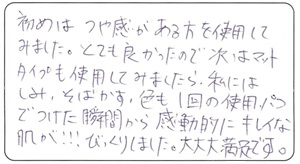 初めは つや感が ある方を使用して
みました。とても良かったので 次はマット
タイプも使用してみましたら、私には
しみ、そばかす、色も 1回の使用、パフ
でつけた瞬間から 感動的に キレイな
肌が!!! びっくりしました。大大大満足です。